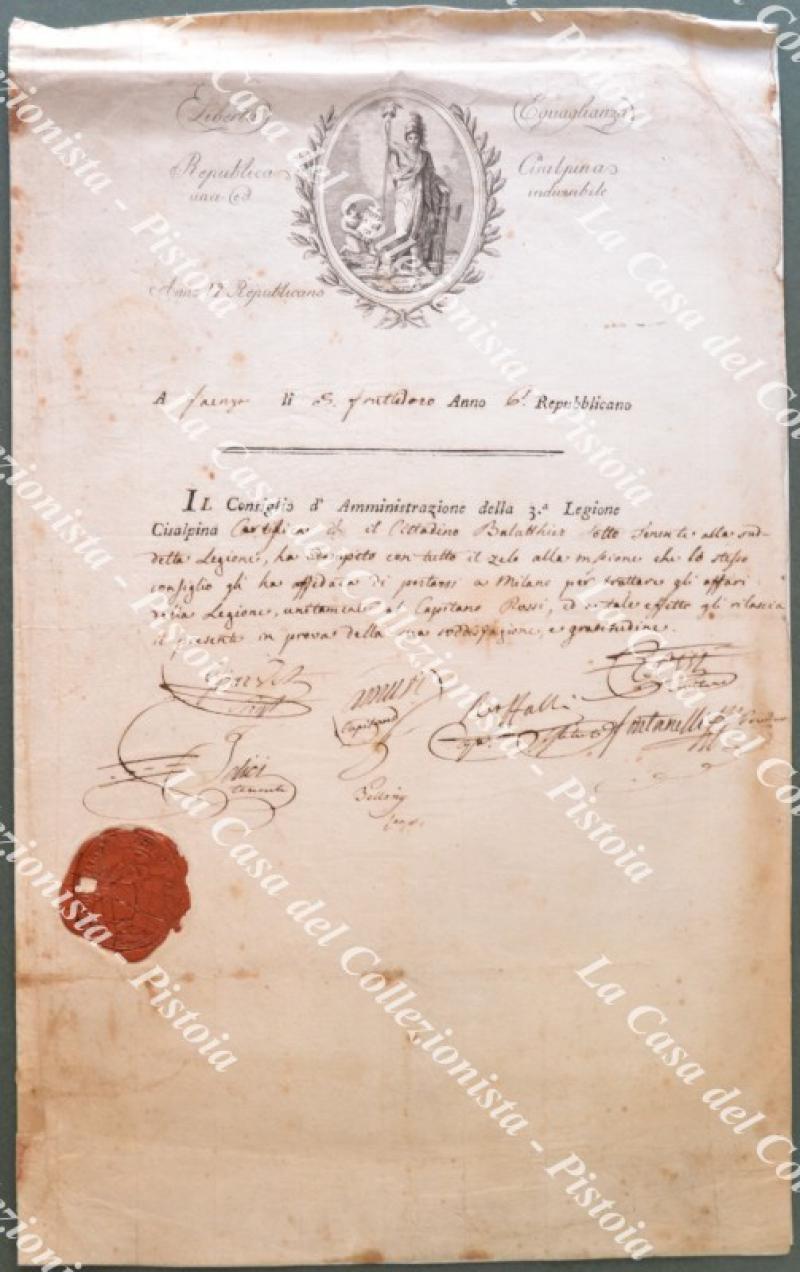 Libertà Eguaglianza
Republica Cisalpina
una ed indivisibile
Anno Republicano
A Faenza li Anno 6.º Repubblicano
IL Consiglio d' Amministrazione della 3.ª Legione
Cisalpina Certifica il Cittadino Balatthier sotto alla sud-
detta Legione, ha compito con tutto il zelo alla missione che lo stesso
consiglio gli ha affidata di portarsi a Milano per trattare gli affari
della Legione, unitamente al Capitano Rossi, ed a tale effetto gli rilascia
il presente in prova della sua soddisfazione, e gratitudine.
Rossi
Capitano
Fontanelli
tenente
La Casa del Collezionista - Pistoia